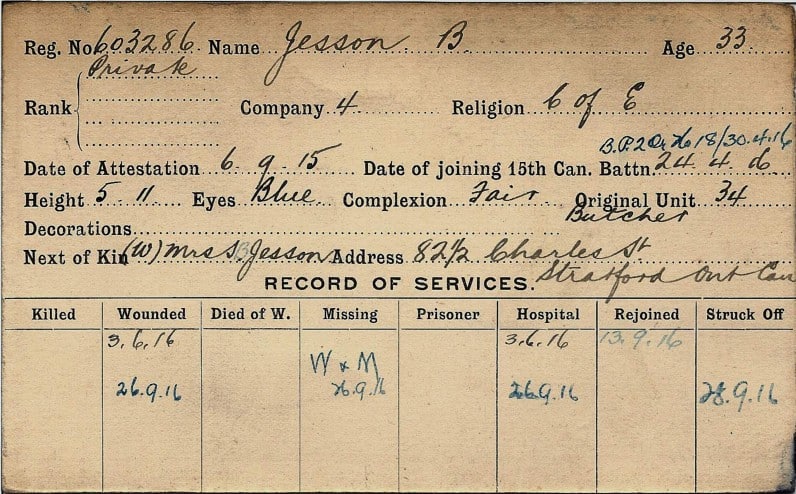 Reg. No. 603286 Name Jesson B. Age 33
Private
Rank Company 4 Religion C of E
18/30.4.16
Date of Attestation 6.9.15 Date of joining 15th Can. Battn. 24 4 6
Height 5 11 Eyes Blue Complexion Fair Original Unit 34
Decorations Butcher
Next of Kin (W) Mrs S Jesson Address 82½ Charles St
Stratford Ont Can
RECORD OF SERVICES.
Killed Wounded Died of W. Missing Prisoner Hospital Rejoined Struck Off
3.6.16 3.6.16 13.9.16
W & M
26.9.16 26.9.16 26.9.16 28.9.16